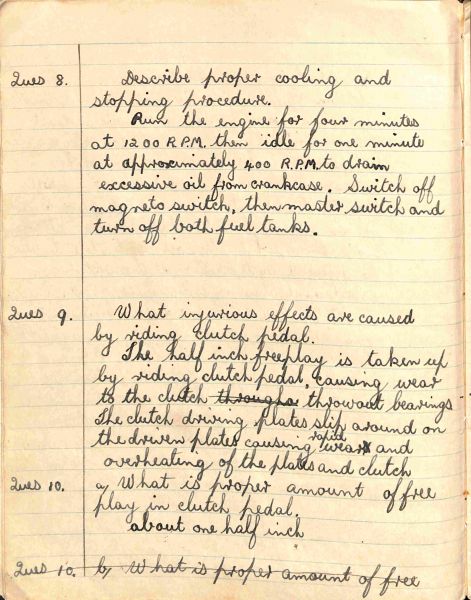 Ques 8. Describe proper cooling and
stopping procedure.
Run the engine for four minutes
at 1200 R.P.M. then idle for one minute
at approximately 400 R.P.M. to drain
excessive oil from crankcase. Switch off
magneto switch, then master switch and
turn off both fuel tanks.
Ques 9. What injurious effects are caused
by riding clutch pedal.
The half inch freeplay is taken up
by riding clutch pedal, causing wear
to the clutch throughs throwout bearings
The clutch driving plates slip around on
the driven plates causing rapid wear and
overheating of the plates and clutch
Ques 10. a, What is proper amount of free
play in clutch pedal.
about one half inch
Ques 10. b, What is proper amount of free